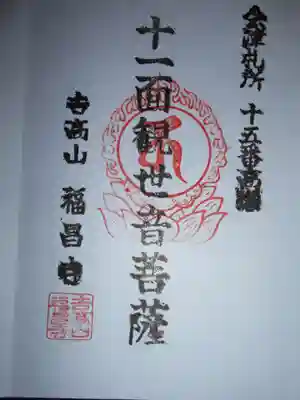 会津札所 十五番高瀬
十一面観世音菩薩
吉高山 福昌寺